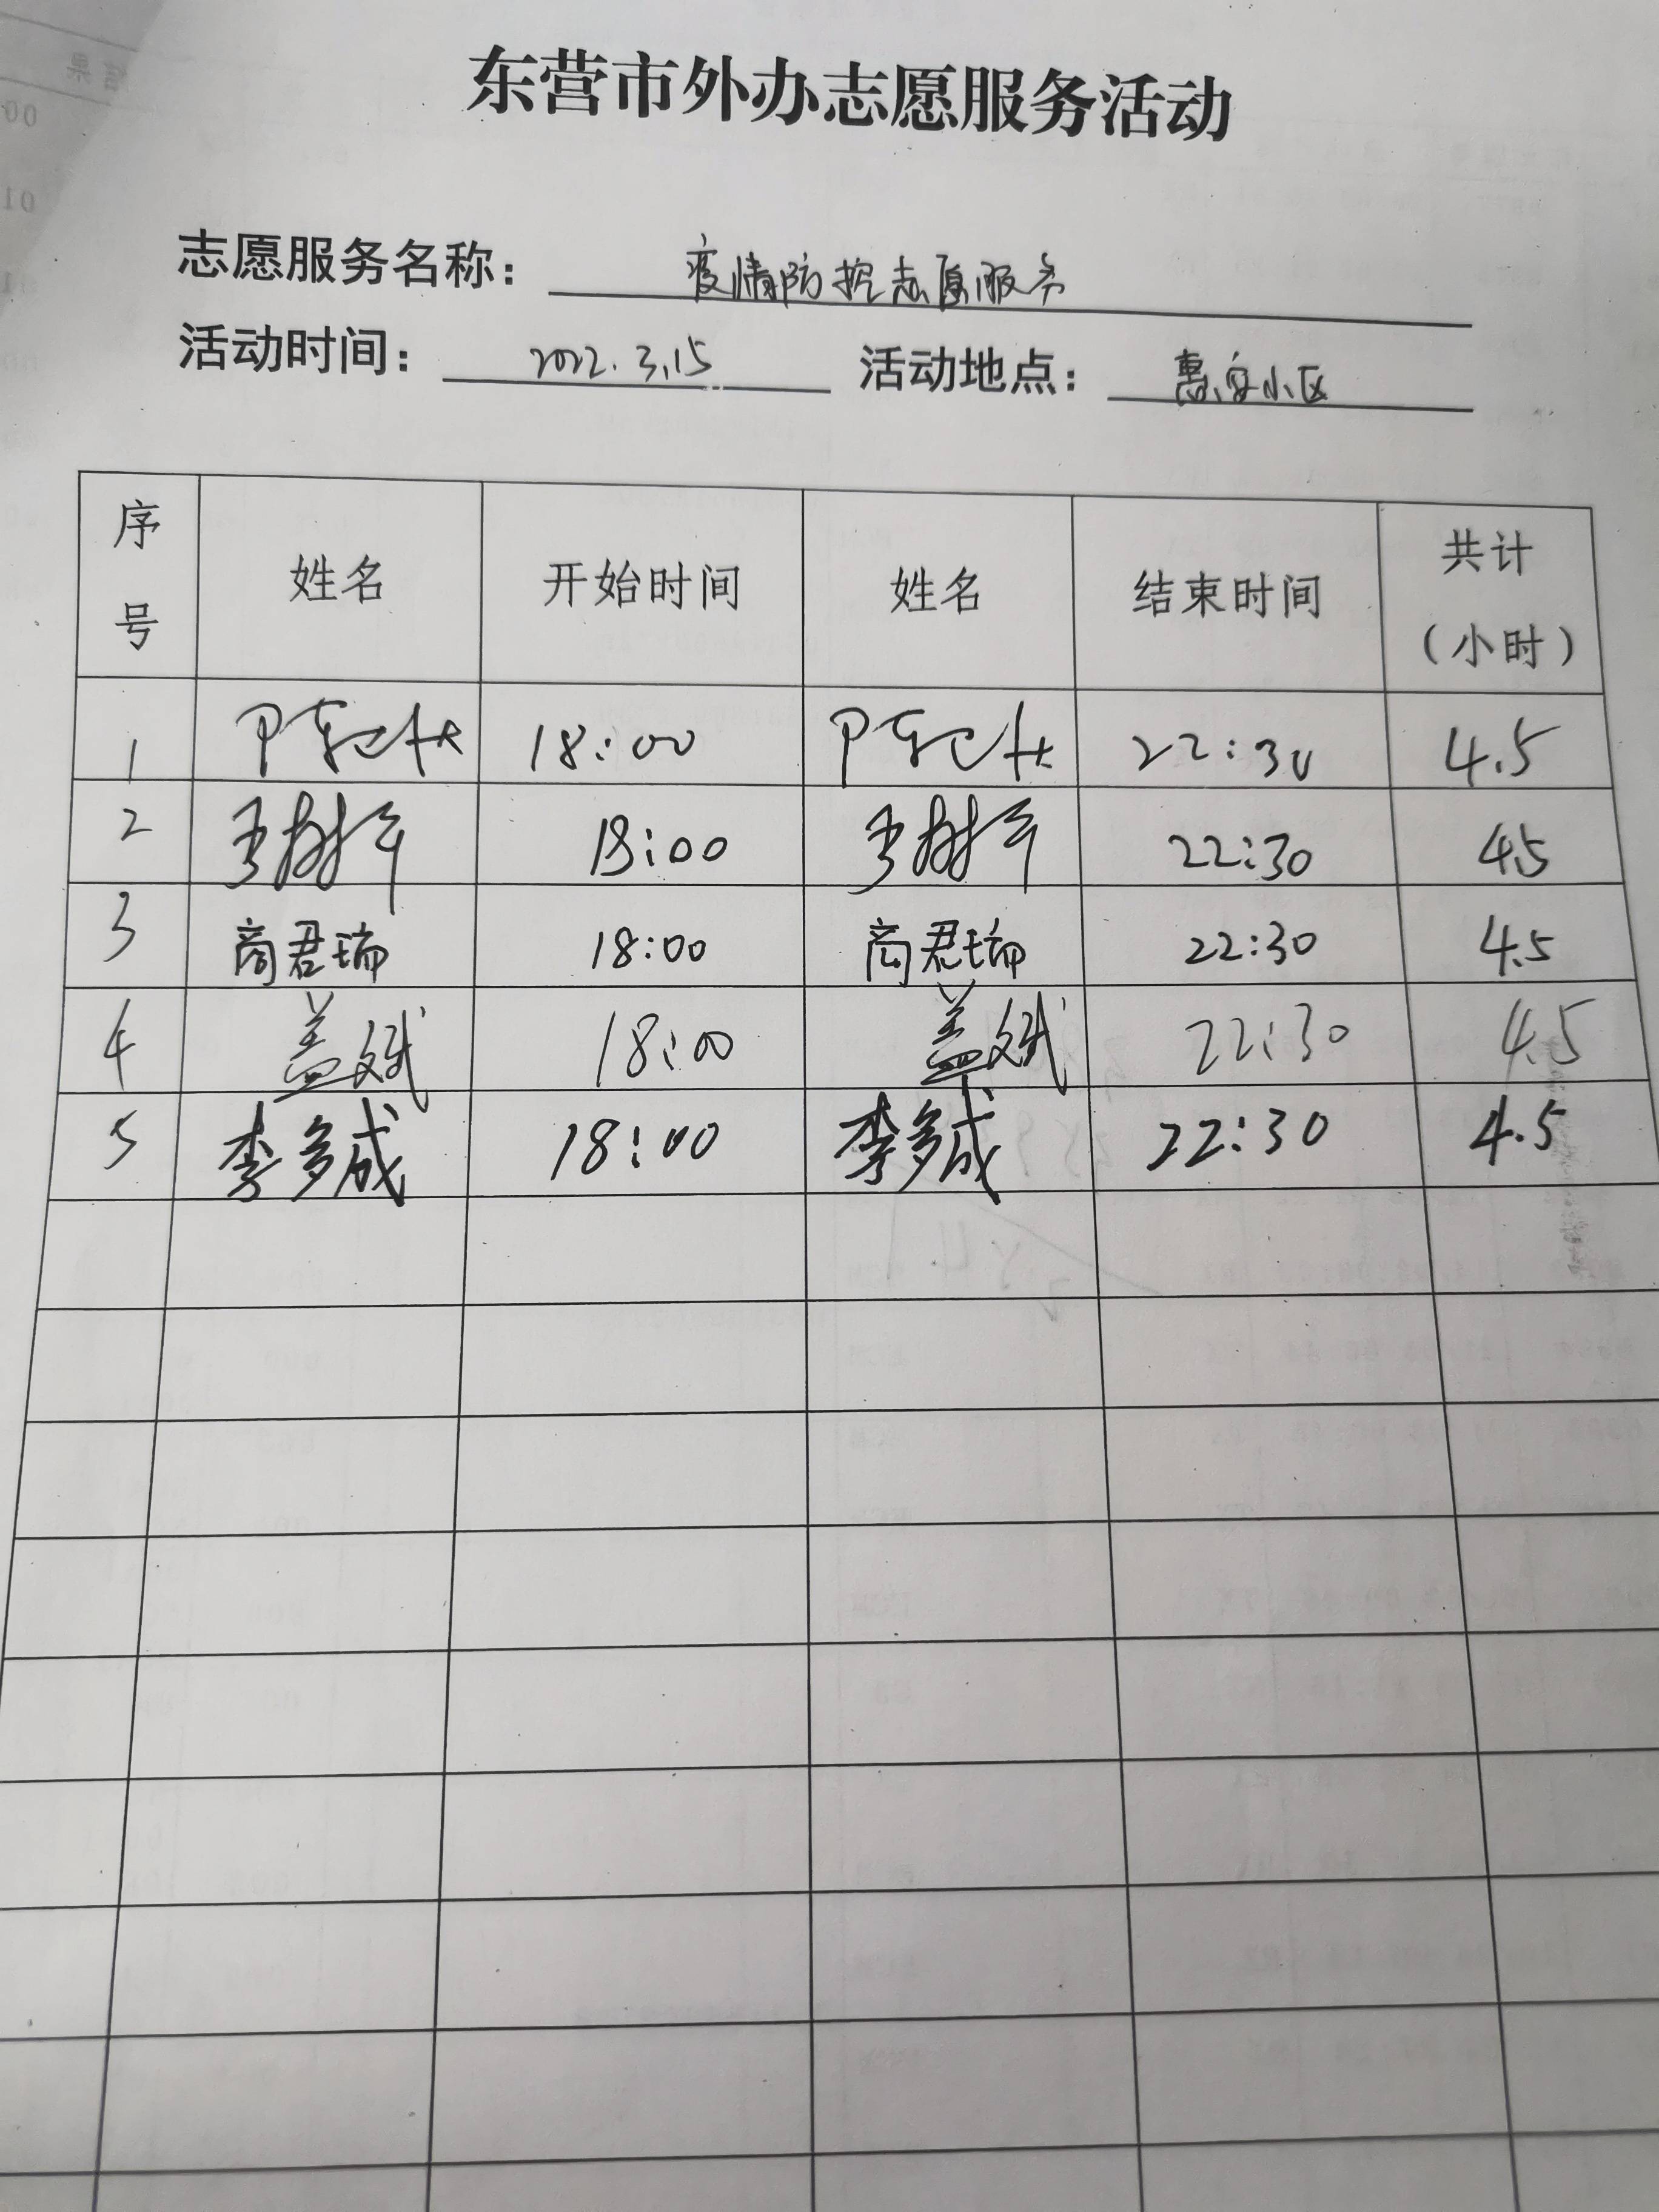 东营市外办志愿服务活动
志愿服务名称： 疫情防控志愿服务
活动时间： 2022.3.15 活动地点： 惠安小区
序号 姓名 开始时间 姓名 结束时间 共计（小时）
1 18:00 22:30 4.5
2 18:00 22:30 4.5
3 商君瑞 18:00 商君瑞 22:30 4.5
4 盖斌 18:00 盖斌 22:30 4.5
5 李多成 18:00 李多成 22:30 4.5